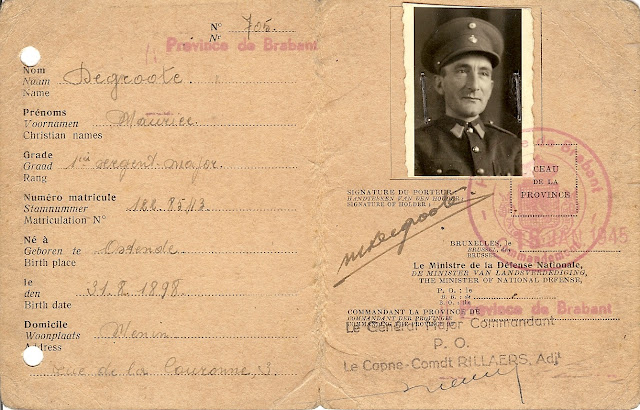 No
Nr 705.
Province de Brabant
Nom
Naam Degroote.
Name
Prénoms
Voornamen Maurice.
Christian names
Grade
Graad 1ier sergent-major.
Rang
Numéro matricule
Stamnummer 182.8543
Matriculation No
Né à
Geboren te Ostende
Birth place
le
den 31.8.1898.
Birth date
Domicile
Woonplaats Menin
Address
rue de la Couronne, 3.
de Brabant
SCEAU
DE LA
PROVINCE
SIGNATURE DU PORTEUR
HANDTEEKEN VAN DEN HOUDER
SIGNATURE OF HOLDER
MDegroote
BRUXELLES, le
BRUSSEL,
BRUSSELS
1945
Le Ministre de la Défense Nationale,
DE MINISTER VAN LANDSVERDEDIGING,
THE MINISTER OF NATIONAL DEFENSE,
P. O. : le
COMMANDANT LA PROVINCE DE
COMMANDANT DER PROVINCIE
COMMANDING THE PROVINCE
Province de Brabant
Le Général Major Commandant
P. O.
Le Capne-Comdt RILLAERS, Adjt